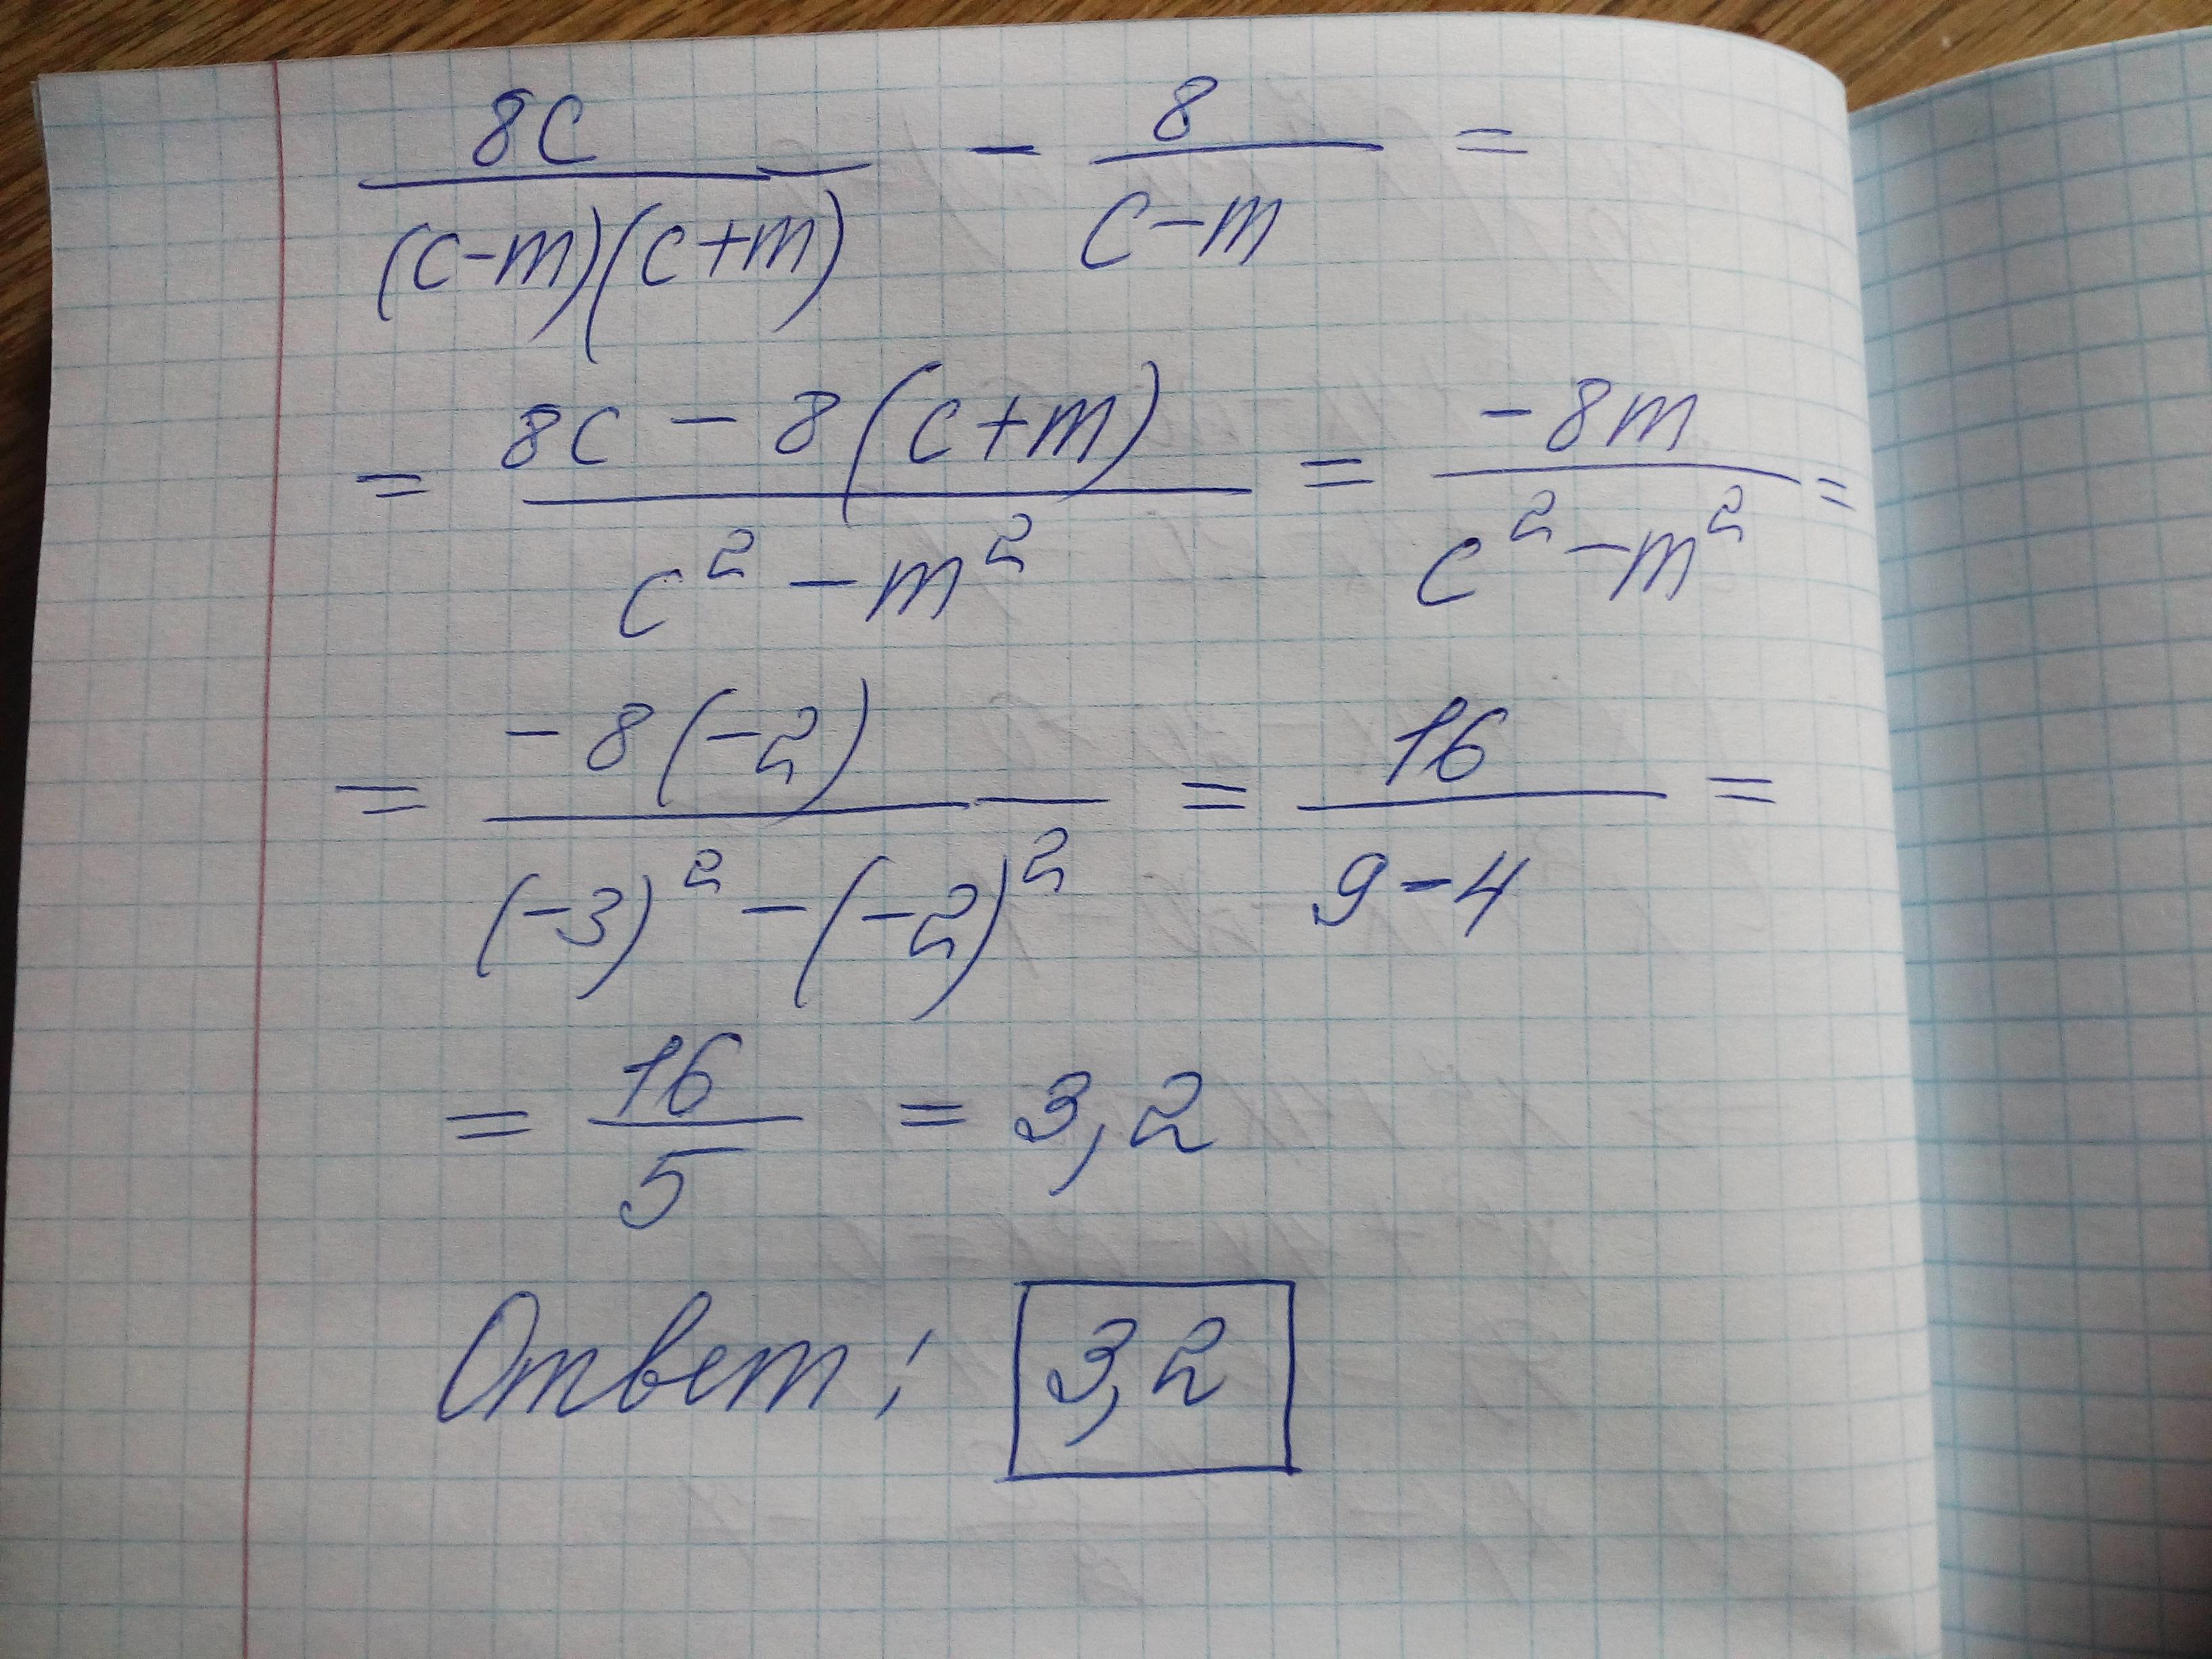 8c/((c-m)(c+m)) - 8/(c-m) =
= (8c - 8(c+m))/(c² - m²) = -8m/(c² - m²) =
= -8(-2)/((-3)² - (-2)²) = 16/(9-4) =
= 16/5 = 3,2
Ответ: 3,2